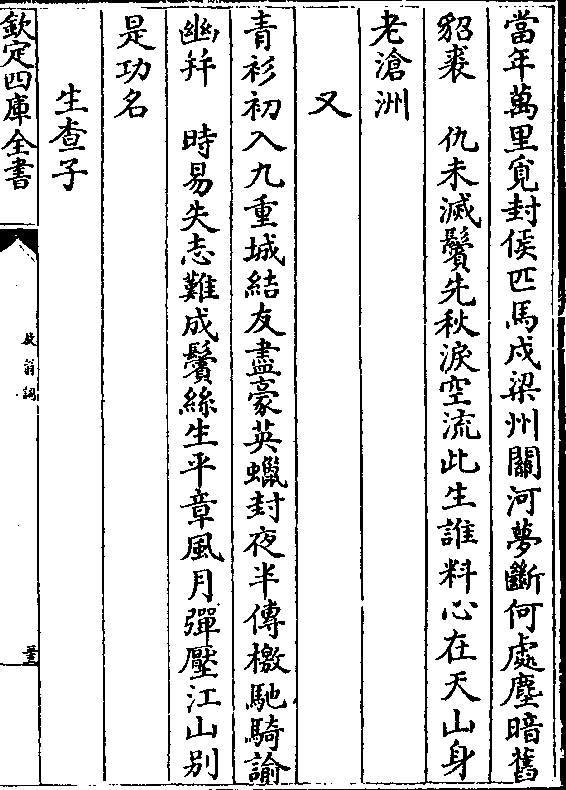 當年萬里覓封侯匹馬戍梁州關河夢斷何處塵暗舊
貂裘　仇未滅鬢先秋淚空流此生誰料心在天山身
老滄洲
又
青衫初入九重城結友盡豪英蠟封夜半傳檄馳騎諭
幽幷　時易失志難成鬢絲生平章風月彈壓江山别
是功名
生查子
欽定四庫全書
放翁詞